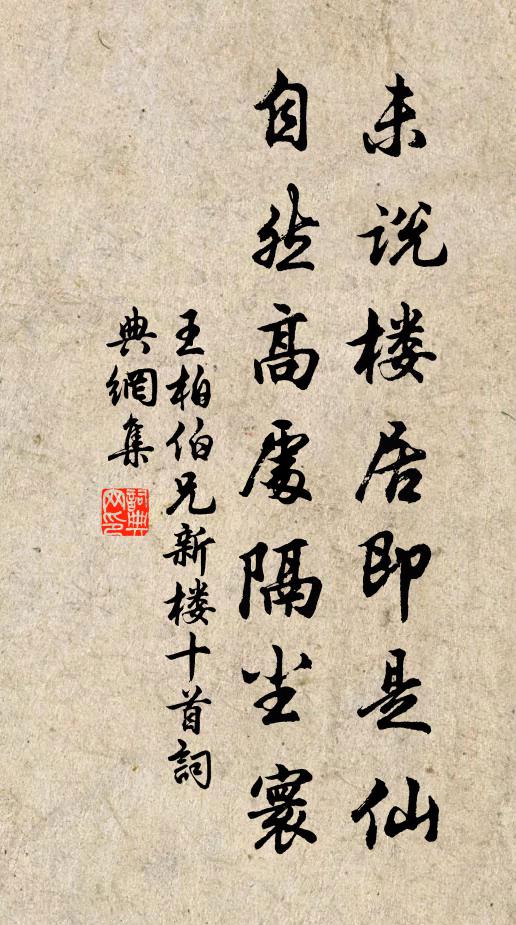 未说楼居即是仙
自然高處隔尘寰
王柏伯兄新楼十首詞
典網集
詞典
网印